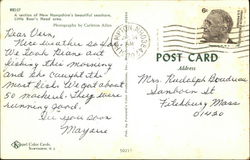 A section of New Hampshire's beautiful seashore,
Little Boar's Head area.
Photography by Carleton Allen
Dear Vern,
Here weather so hot
We took Diane out
fishing this morning
and she caught the
most fish. We got about
50 mackerel. They were
running good.
See you soon
Mayone
POST CARD
Address
6¢
Mrs. Rudolph Boudreau
Sanborn St
Fitchburg Mass.
01420
Color Cards,